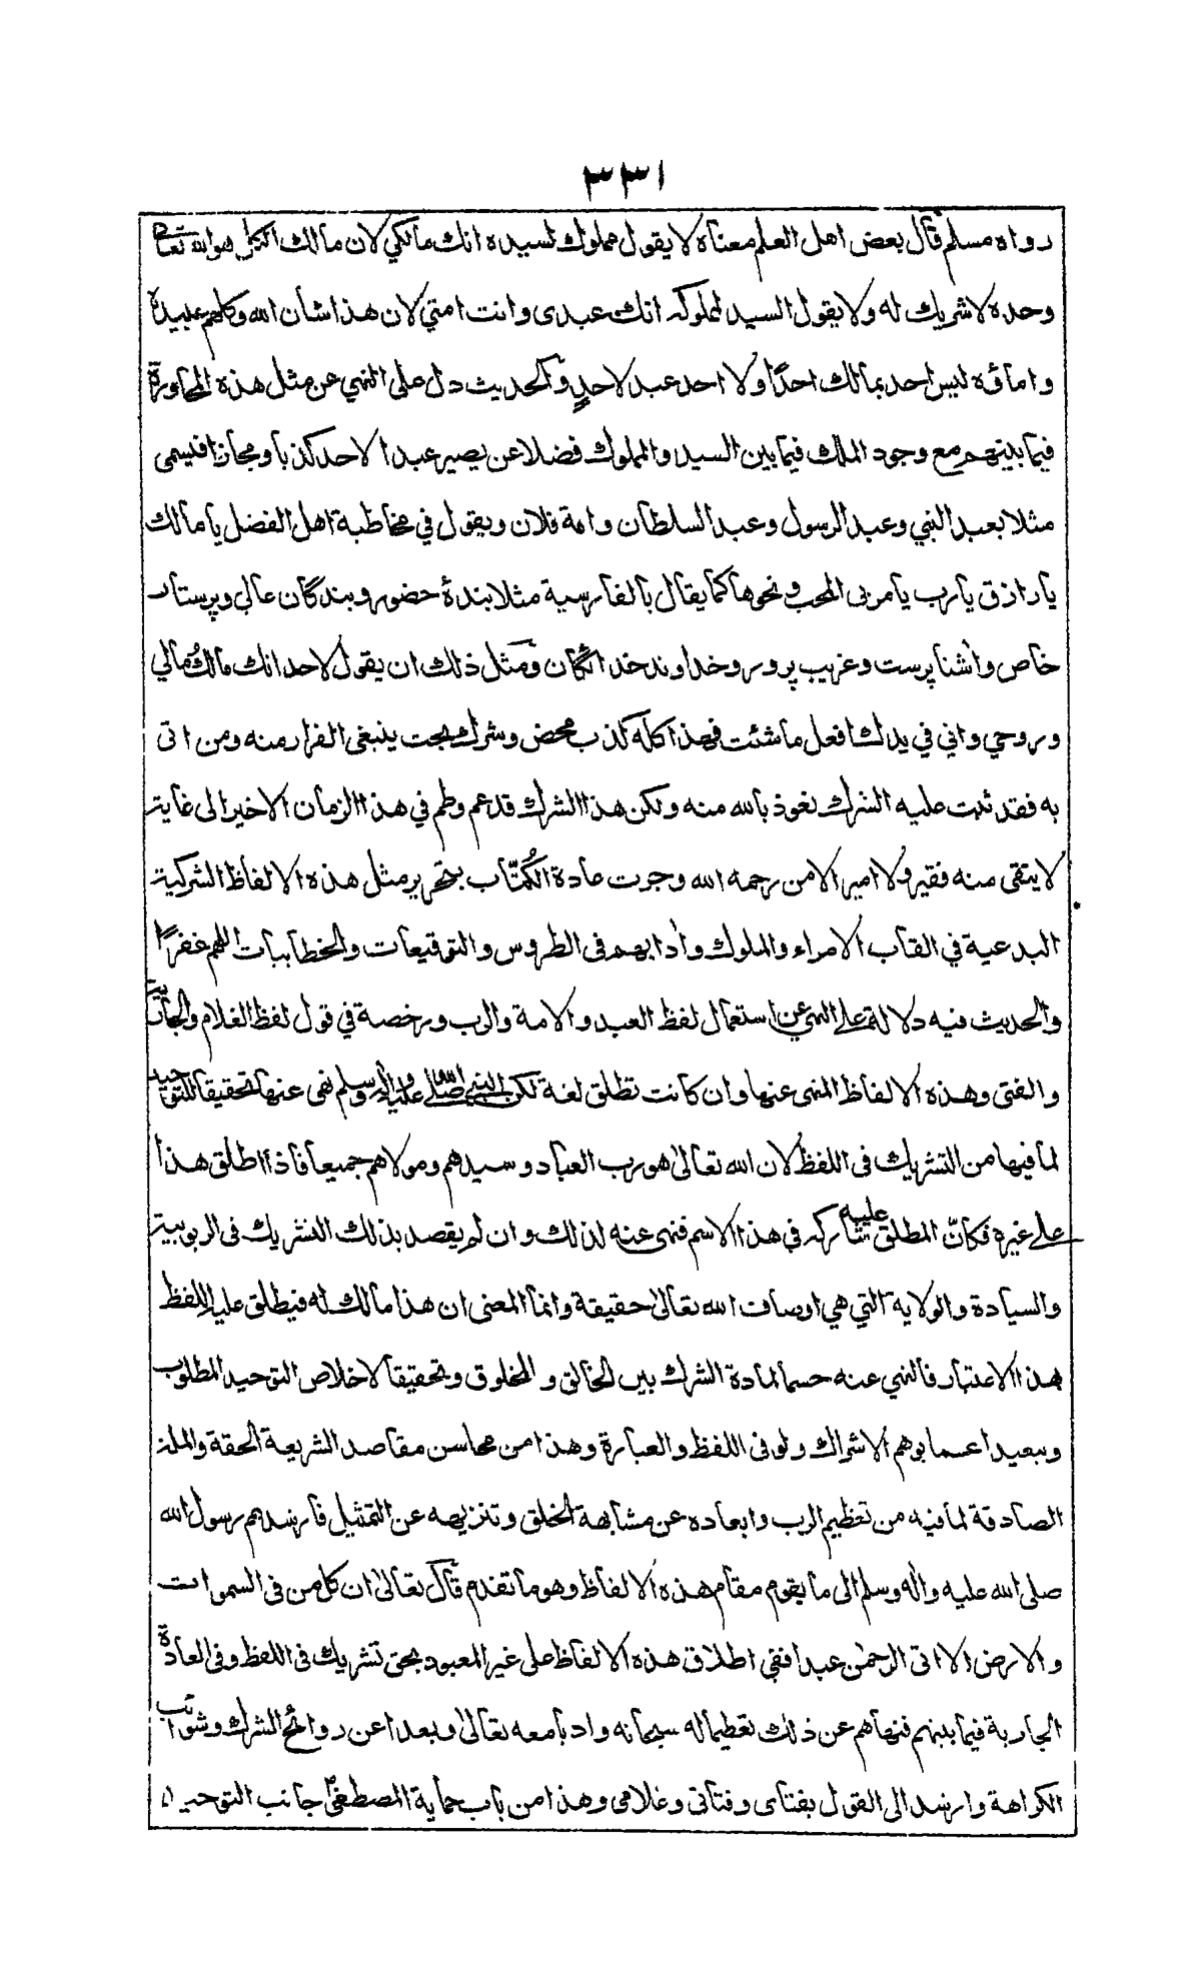 ٣٣١
رواه مسلم قال بعض اهل العلم معناه لا يقول مملوك لسيده انك مالكي لان مالك الكل هو الله تعالى
وحده لا شريك له ولا يقول السيد لمملوكه انك عبدى وانت امتي لان هذا شأن الله وكلهم عبيده
واماؤه ليس احد بمالك احدًا ولا احد عبد لاحدٍ والحديث دل على النهي عن مثل هذه المحاورة
فيما بينهم مع وجود الملك فيما بين السيد والمملوك فضلا عن يصير عبدا لاحد كذبا ومجازا فيسمى
مثلا بعبد النبي وعبد الرسول وعبد السلطان وامة فلان ويقول في مخاطبة اهل الفضل يا مالك
يا رازق يا رب يا مربى المحب ونحوها كما يقال بالفارسية مثلا بندۀ حضور وبندگان عالي وپرستار
خاص وآشنا پرست وغريب پرور وخداوند خدائگان ومثل ذلك ان يقول لاحد انك مالك مالي
وروحي واني في يدك افعل ما شئت فهذا كله كذب محض وشرك بحت ينبغى الفرار منه ومن اتى
به فقد ثبت عليه الشرك نعوذ بالله منه ولكن هذا الشرك قد عم وطم في هذا الزمان الاخير الى غاية
لا يتقى منه فقير ولا امير الا من رحمه الله وجرت عادة الكُتّاب بتحرير مثل هذه الالفاظ الشركية
البدعية في القاب الامراء والملوك وآدابهم فى الطروس والتوقيعات والخطابات اللهم غفرًا
والحديث فيه دلالة على النهي عن استعمال لفظ العبد والامة والرب ورخصة في قول لفظ الغلام والجارية
والفتى وهذه الالفاظ المنهى عنها وان كانت تطلق لغة لكن النبي صلى الله عليه وآله وسلم نهى عنها تحقيقا للتوحيد
لما فيها من التشريك فى اللفظ لان الله تعالى هو رب العباد وسيدهم ومولاهم جميعا فاذا اطلق هذا
على غيره فكأنّ المطلق عليه شاركه في هذا الاسم فنهى عنه لذلك وان لم يقصد بذلك التشريك فى الربوبية
والسيادة والولاية التي هي اوصاف الله تعالى حقيقة وانما المعنى ان هذا مالك له فيطلق عليه اللفظ
هذا الاعتبار فالنهي عنه حسما لمادة الشرك بين الخالق والمخلوق وتحقيقا لاخلاص التوحيد المطلوب
وبعيدا عما يوهم الاشراك ولو فى اللفظ والعبارة وهذا من محاسن مقاصد الشريعة الحقة والملة
الصادقة لما فيه من تعظيم الرب وابعاده عن مشابهة الخلق وتنزيهه عن التمثيل فارشدهم رسول الله
صلى الله عليه وآله وسلم الى ما يقوم مقام هذه الالفاظ وهو ما تقدم قال تعالى ان كل من فى السموات
والارض الا اتى الرحمٰن عبدا ففي اطلاق هذه الالفاظ على غير المعبود بحق تشريك فى اللفظ وفى العادة
الجارية فيما بينهم فنهاهم عن ذلك تعظيما له سبحانه وادبا معه تعالى وبعدا عن روائح الشرك وشوائب
الكراهة وارشد الى القول بفتاى وفتاتى وغلامى وهذا من باب حماية المصطفى جانب التوحيد